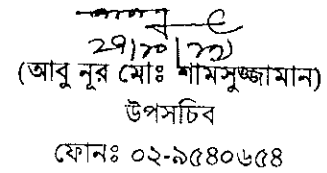 (আবু নূর মোঃ শামসুজ্জামান)
উপসচিব
ফোনঃ ০২-৯৫৪০৬৫৪